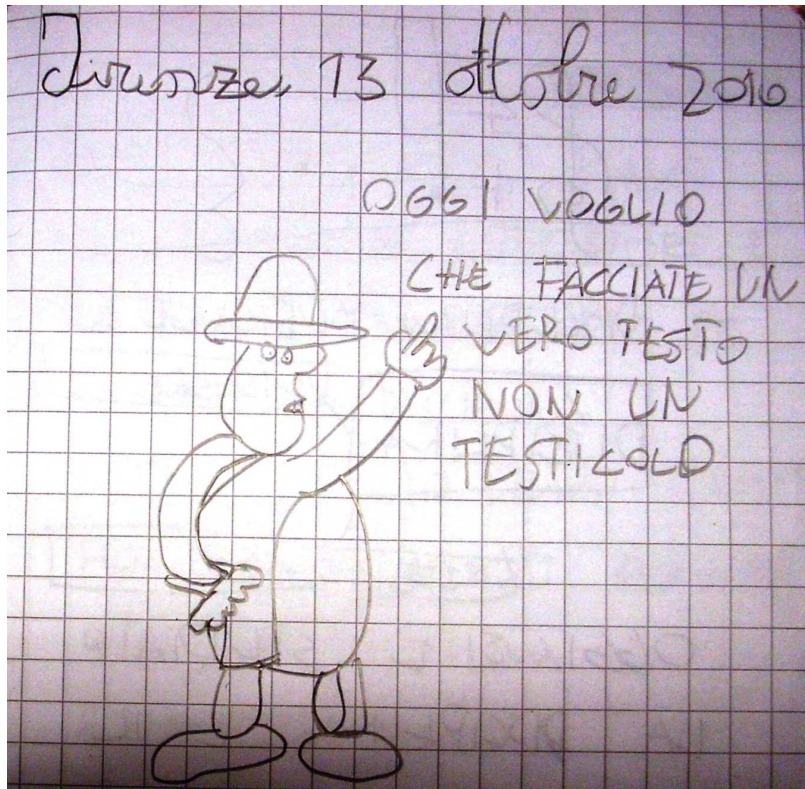 Firenze, 13 ottobre 2010
OGGI VOGLIO
CHE FACCIATE UN
VERO TESTO
NON UN
TESTICOLO